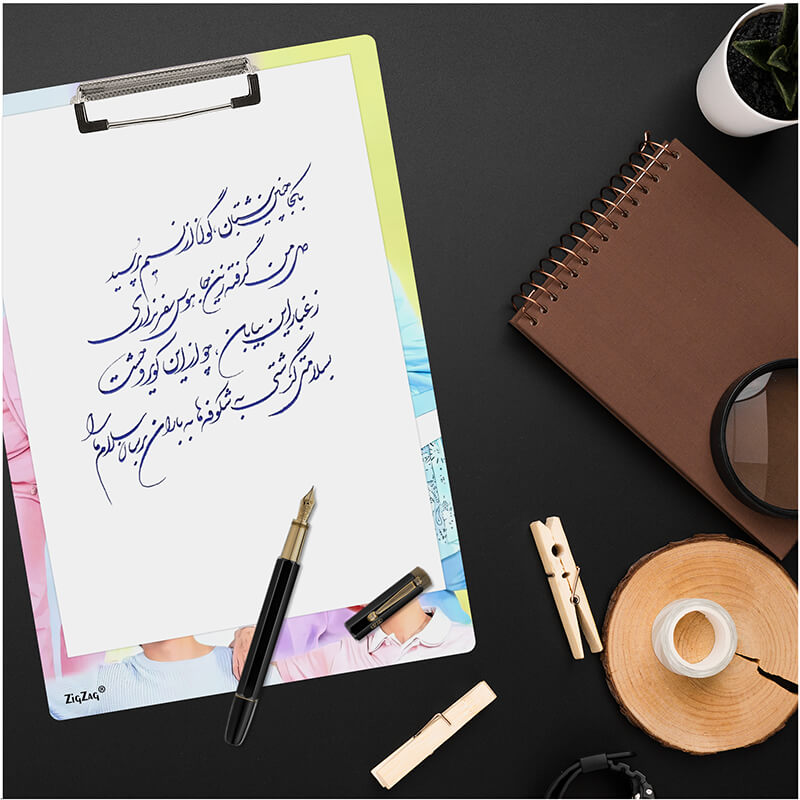 بکجا چنین شتابان، گون از نسیم پرسید
دل من گرفته زین جا هوس سفر نداری
ز غبار این بیابان، چو از این کویر وحشت
بسلامتی گذشتی به شکوفه‌ها به باران برسان سلام ما را
ZigZag®